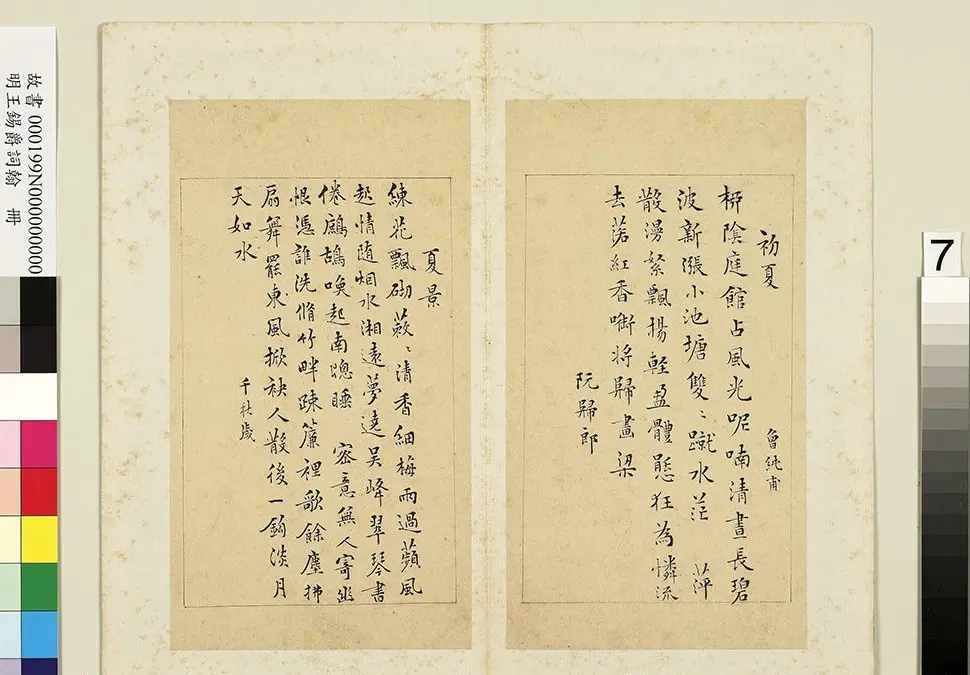 初夏
曾純甫
柳陰庭館占風光呢喃清晝長碧
波新漲小池塘雙〻蹴水茫 萍
散漫絮飄揚輕盈體態狂為憐流
去落紅香啣將歸畫梁
阮歸郎
夏景
練花飄砌蔌〻清香細梅雨過蘋風
起情随烟水湘遠夢遶吳峰翠琴書
倦鷓鴣喚起南窓睡 密意無人寄幽
恨憑誰洗脩竹畔疎簾裡歌餘塵拂
扇舞罷東風掀袂人散後一鈎淡月
天如水
千秋歲
故書 000199N000000000
明王錫爵詞翰 冊
7